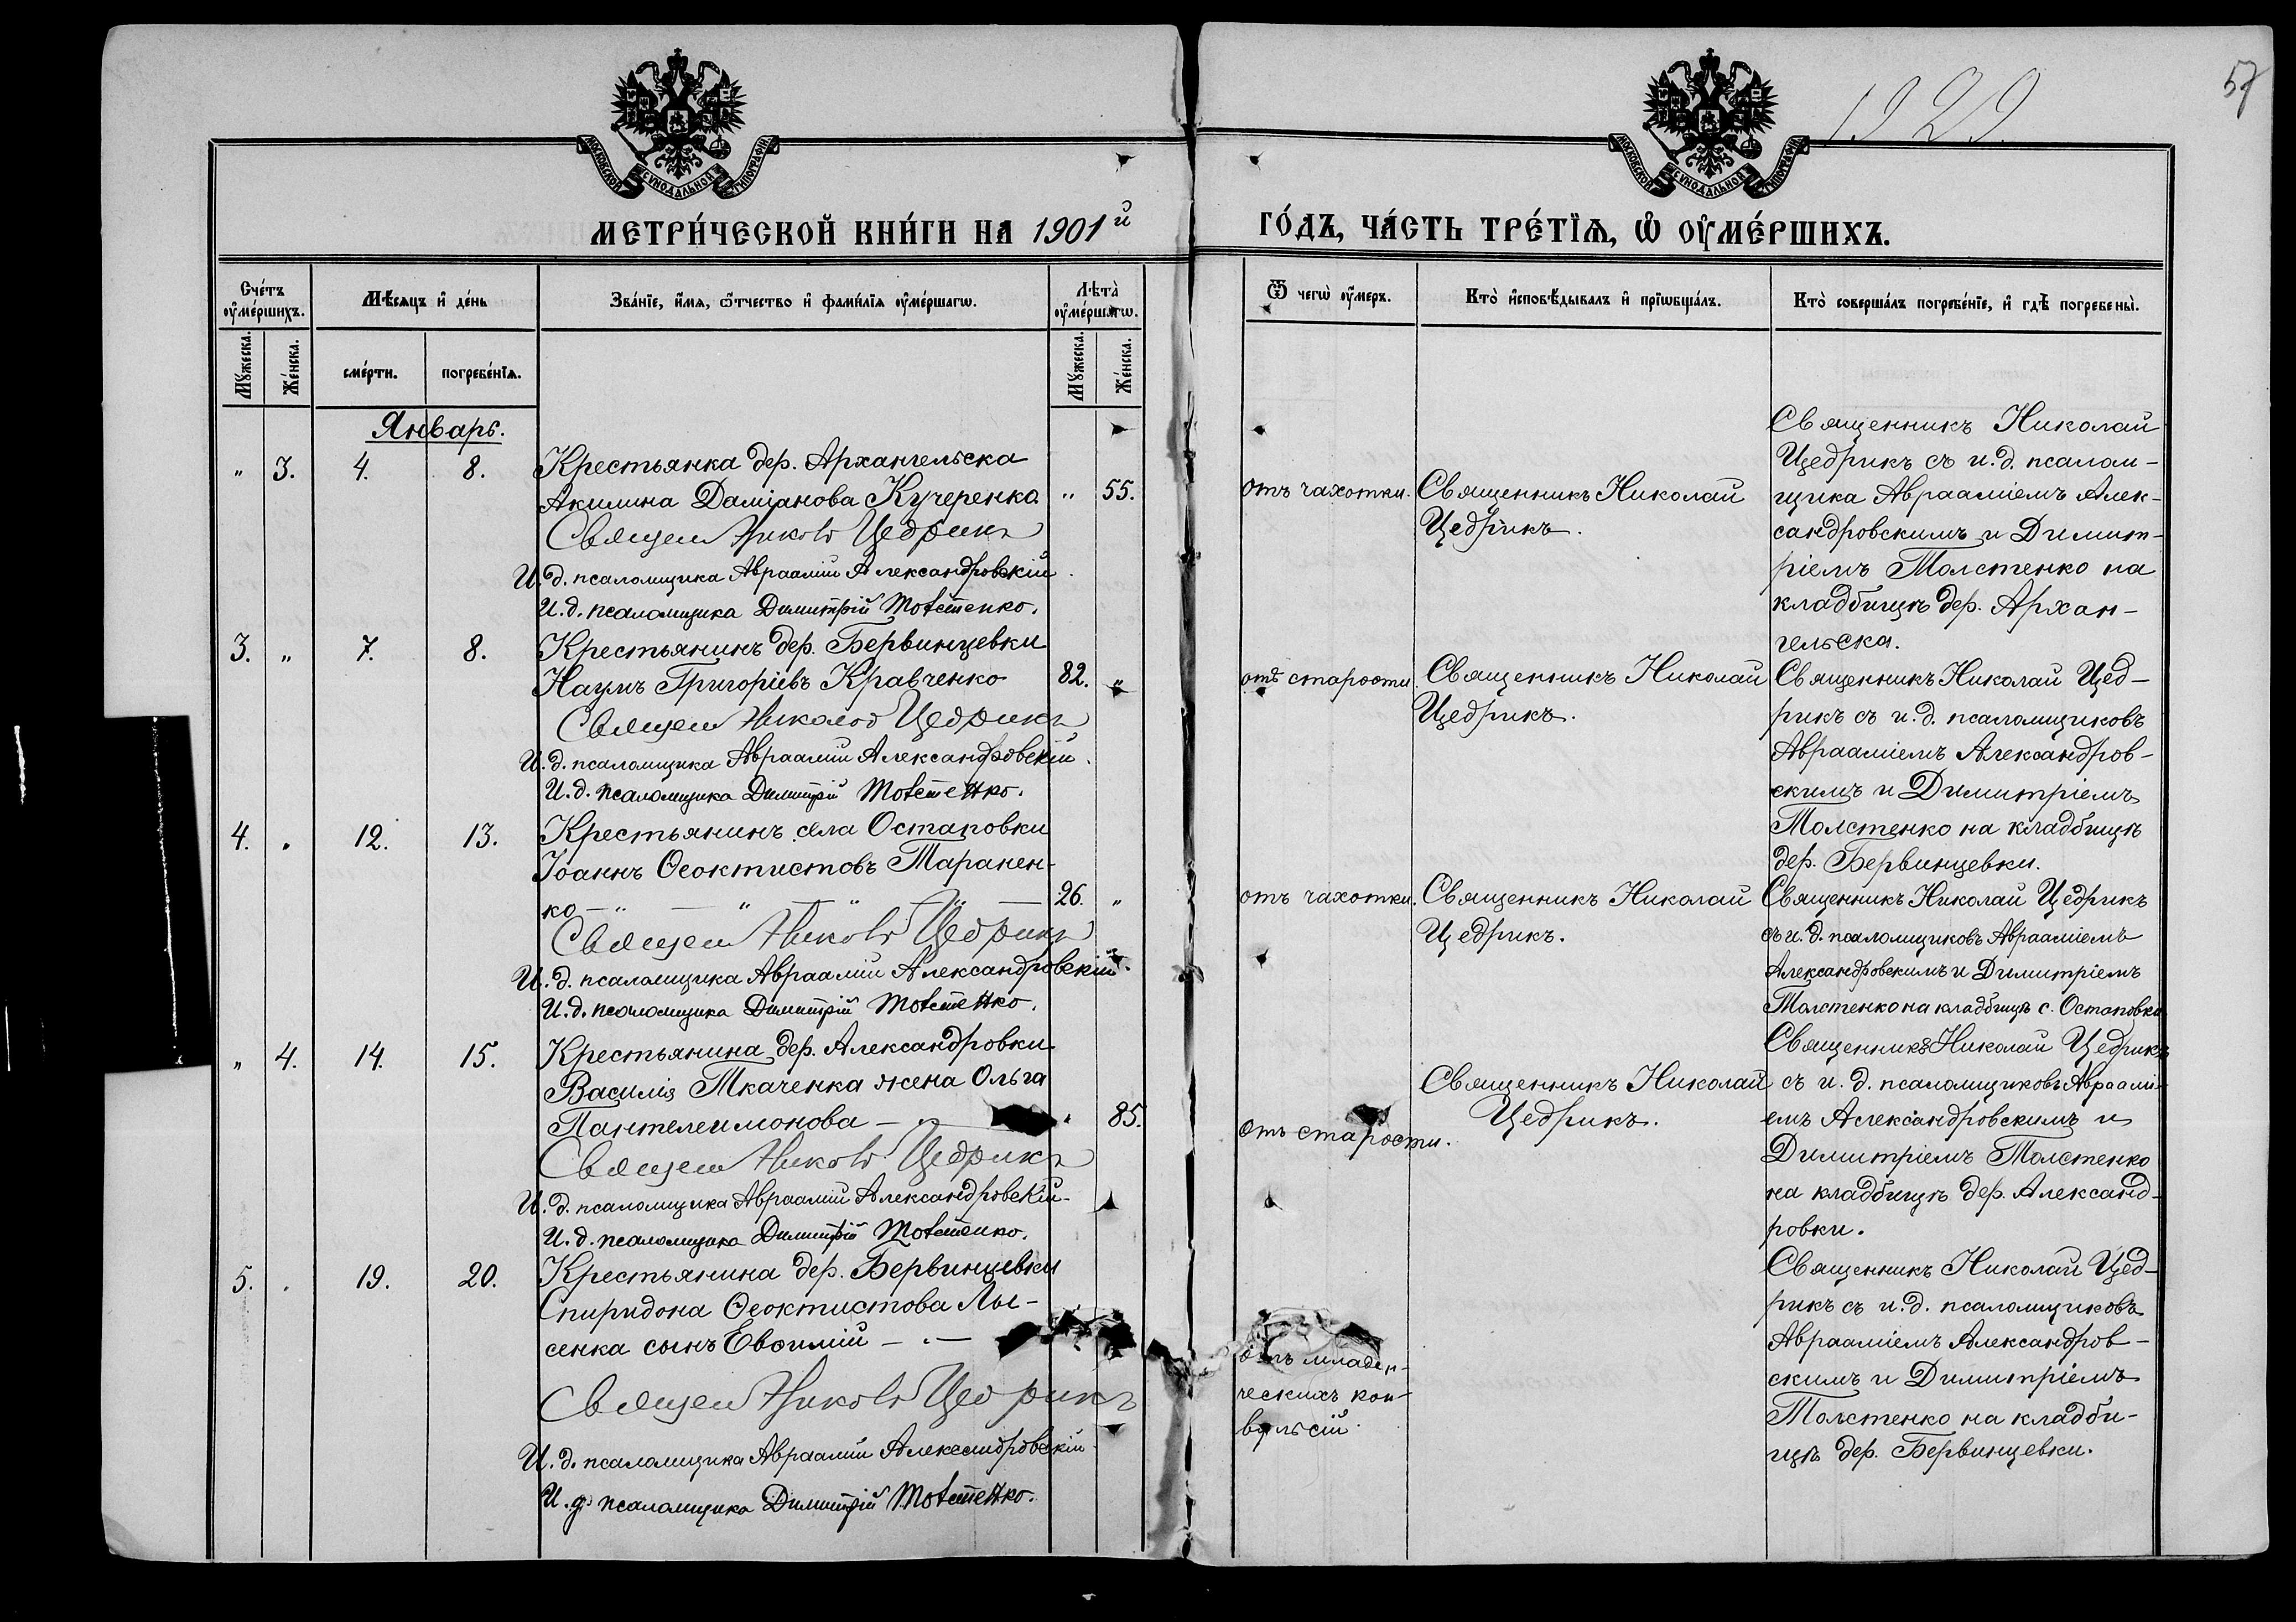 57
1929.
МОСКОВСКОЙ СѴНОДАЛЬНОЙ ТИПОГРАФІИ
МОСКОВСКОЙ СѴНОДАЛЬНОЙ ТИПОГРАФІИ
МЕТРИ́ЧЕСКОЙ КНИ́ГИ НА 1901й
ГО́ДЪ, ЧА́СТЬ ТРЕ́ТЇѦ, Ѡ҆ ОУ҆МЕ́РШИХЪ.
Сче́тъ оу҆ме́ршихъ.
Мѣ́сяцъ и҆ де́нь
Зва́нїе, и҆́мя, ѻ҆́тчество и҆ фами́лїя оу҆ме́ршагѡ.
Лѣ́та̀ оу҆ме́ршагѡ.
Ѿ чегѡ̀ оу҆́меръ.
Кто̀ и҆сповѣ́дывалъ и҆ прїѡбща́лъ.
Кто̀ соверша́лъ погребе́нїе, и҆ гдѣ̀ погребены̀.
Мꙋ́жеска.
Же́нска.
сме́рти.
погребе́нїя.
Мꙋ́жеска.
Же́нска.
Январь.
" 3. 4. 8.
Крестьянка дер. Архангельска
Акилина Даміанова Кучеренко. " 55.
Священ Николай Цедрикъ
И. д. псаломщика Авраамій Александровскій.
И. д. псаломщика Димитрій Толстенко.
отъ чахотки.
Священникъ Николай
Цедрикъ.
Священникъ Николай
Цедрикъ съ и. д. псалом-
щика Авраамiемъ Алек-
сандровскимъ и Димит-
ріемъ Толстенко на
кладбищѣ дер. Архан-
гельска.
3. " 7. 8.
Крестьянинъ дер. Бервинцевки
Наумъ Григоріевъ Кравченко 82. "
Священ Николай Цедрикъ
И. д. псаломщика Авраамій Александровскій.
И. д. псаломщика Димитрій Толстенко.
отъ старости
Священникъ Николай
Цедрикъ.
Священникъ Николай Цед-
рикъ съ и. д. псаломщиковъ
Авраамiемъ Александров-
скимъ и Димитріемъ
Толстенко на кладбищѣ
дер. Бервинцевки.
4. " 12. 13.
Крестьянинъ села Остаповки
Іоаннъ Ѳеоктистовъ Таранен-
ко — " — " — " — " — 26. "
Священ Николай Цедрикъ
И. д. псаломщика Авраамій Александровскій.
И. д. псаломщика Димитрій Толстенко.
отъ чахотки.
Священникъ Николай
Цедрикъ.
Священникъ Николай Цедрикъ
съ и. д. псаломщиковъ Авраамiемъ
Александровскимъ и Димитріемъ
Толстенко на кладбищѣ с. Остаповки
" 4. 14. 15.
Крестьянина дер. Александровки
Василія Ткаченка жена Ольга
Пантелеимонова — " 85.
Священ Николай Цедрикъ
И. д. псаломщика Авраамій Александровскій.
И. д. псаломщика Димитрій Толстенко.
отъ старости.
Священникъ Николай
Цедрикъ.
Священникъ Николай Цедрикъ
съ и. д. псаломщиковъ Авраамі-
емъ Александровскимъ и
Димитріемъ Толстенко
на кладбищѣ дер. Александ-
ровки.
5. " 19. 20.
Крестьянина дер. Бервинцевки
Спиридона Ѳеоктистова Лы-
сенка сынъ Евѳимій — " —
Священ Николай Цедрикъ
И. д. псаломщика Авраамій Александровскій.
И. д. псаломщика Димитрій Толстенко.
отъ младен-
ческихъ кон-
вульсій.
Священникъ Николай Цед-
рикъ съ и. д. псаломщиковъ
Авраамiемъ Александров-
скимъ и Димитріемъ
Толстенко на кладби-
щѣ дер. Бервинцевки.